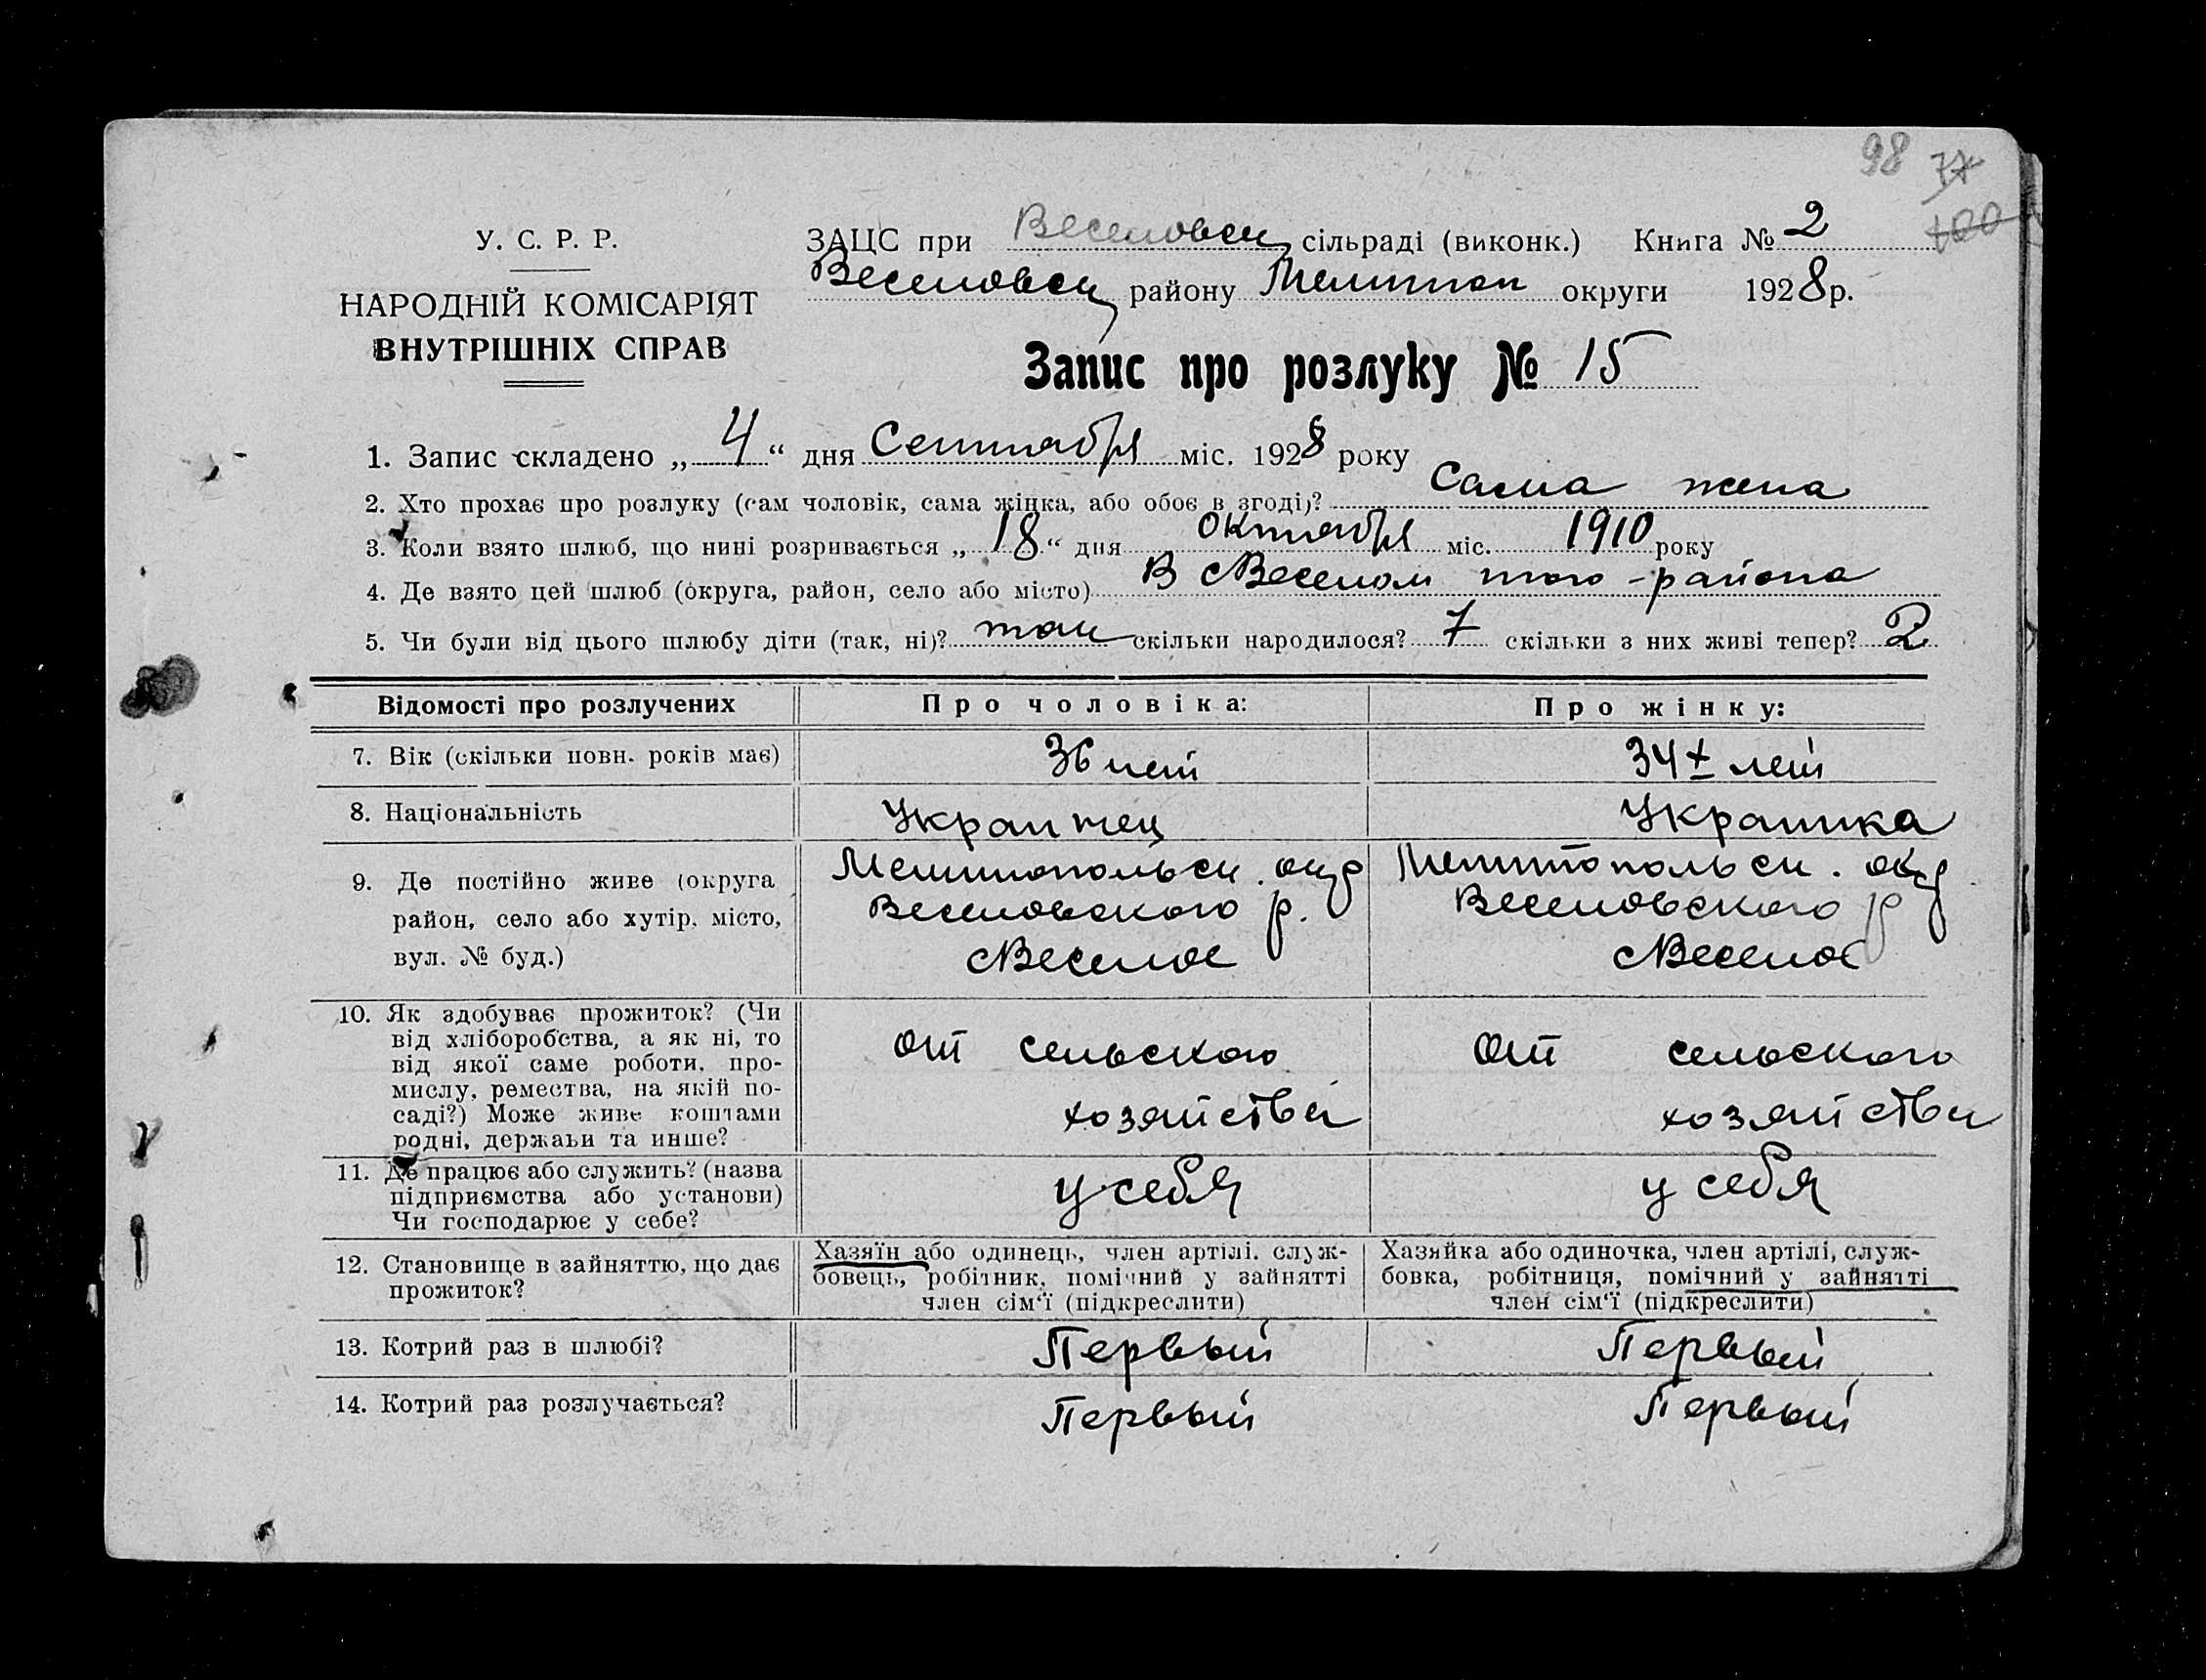 98 77
100
У. С. Р. Р.
НАРОДНІЙ КОМІСАРІЯТ
ВНУТРІШНІХ СПРАВ
ЗАЦС при Веселовск сільраді (виконк.) Книга № 2
Веселовск району Мелитоп округи 1928 р.
Запис про розлуку № 15
1. Запис складено „ 4 “ дня Сентября міс. 1928 року
2. Хто прохає про розлуку (сам чоловік, сама жінка, або обоє в згоді)? Сама жена
3. Коли взято шлюб, що нині розривається „ 18 “ дня октября міс. 1910 року
4. Де взято цей шлюб (округа, район, село або місто) В с Веселом того-района
5. Чи були від цього шлюбу діти (так, ні)? так скільки народилося? 7 скільки з них живі тепер? 2
Відомості про розлучених Про чоловіка: Про жінку:
7. Вік (скільки повн. років має) 36 лет 34 лет
8. Національність Украинец Украинка
9. Де постійно живе (округа Мелитопольск. окр Мелитопольск. окр
район, село або хутір, місто, Веселовского р. Веселовского р
вул. № буд.) с Веселое с Веселое
10. Як здобуває прожиток? (Чи
від хліборобства, а як ні, то от сельского от сельского
від якої саме роботи, про-
мислу, ремества, на якій по-
саді?) Може живе коштами хозяйства хозяйства
родні, держави та инше?
11. Де працює або служить? (назва
підприємства або установи) у себя у себя
Чи господарює у себе?
12. Становище в зайняттю, що дає
прожиток?
Хазяїн або одинець, член артілі, служ-
бовець, робітник, помічний у зайнятті
член сім‘ї (підкреслити)
Хазяйка або одиночка, член артілі, служ-
бовка, робітниця, помічний у зайнятті
член сім‘ї (підкреслити)
13. Котрий раз в шлюбі? Первый Первый
14. Котрий раз розлучається? Первый Первый